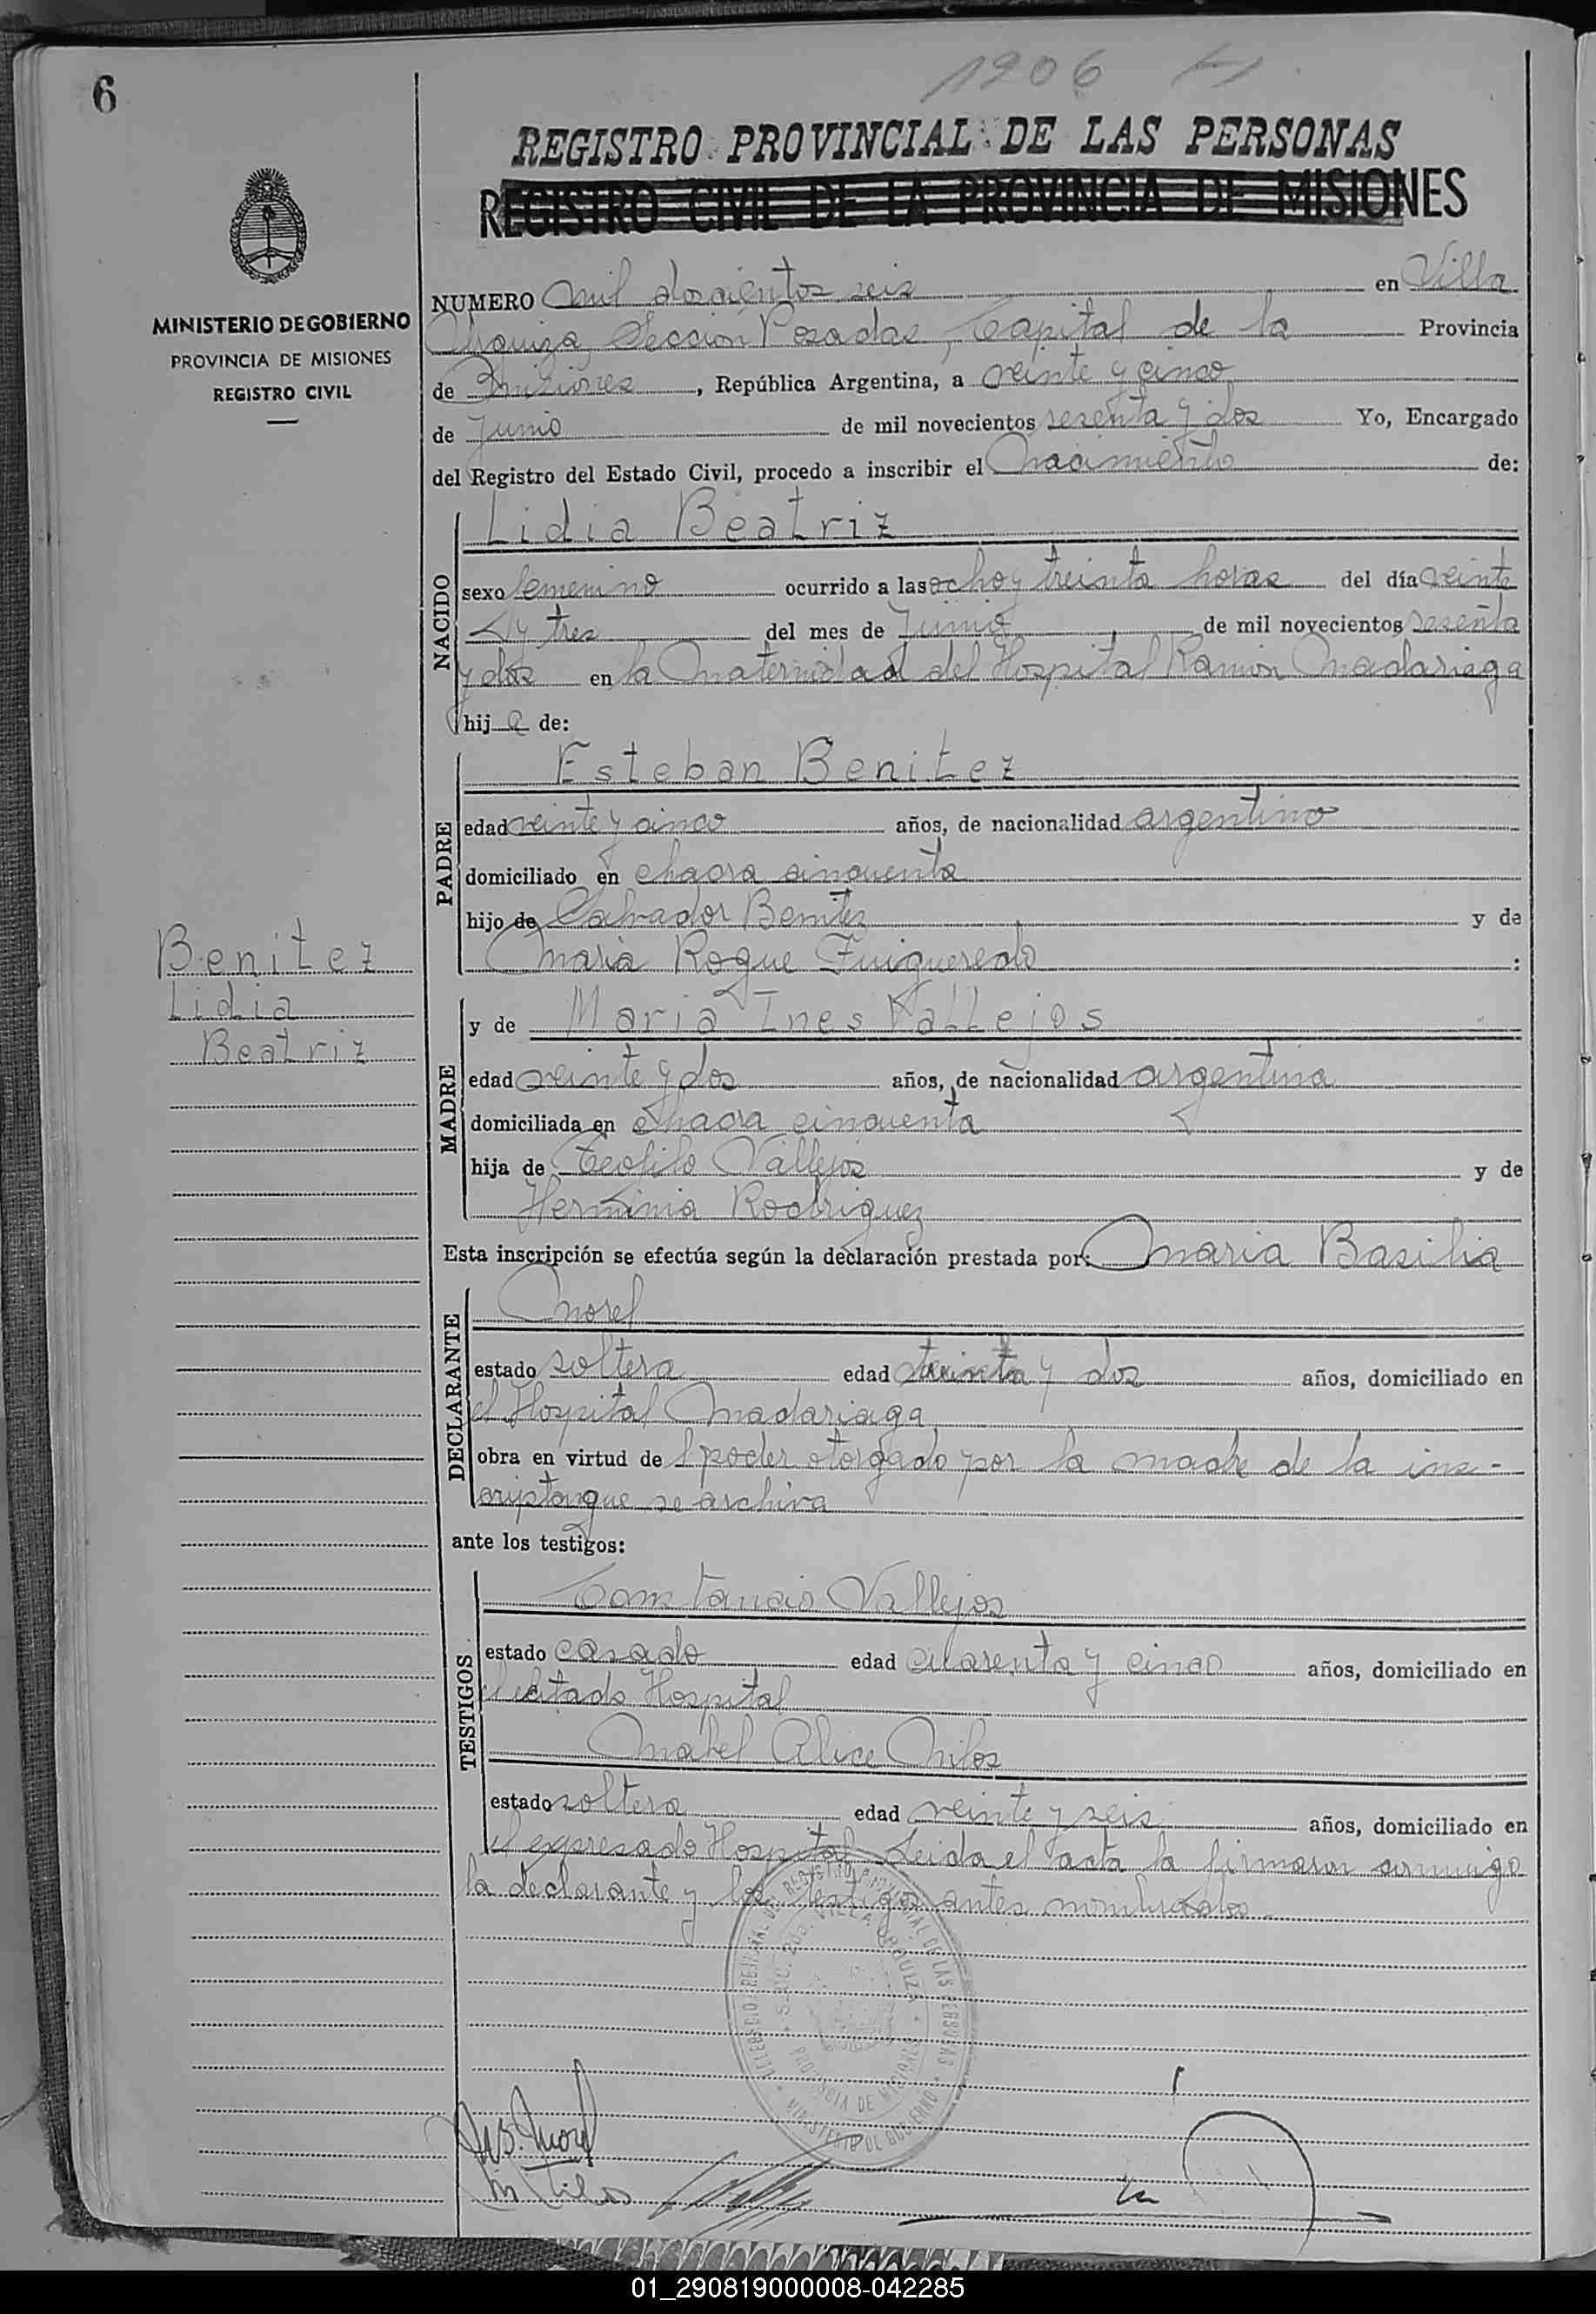 6
1206
REGISTRO PROVINCIAL DE LAS PERSONAS
REGISTRO CIVIL DE LA PROVINCIA DE MISIONES
MINISTERIO DE GOBIERNO
PROVINCIA DE MISIONES
REGISTRO CIVIL
NUMERO mil doscientos seis en Villa
Urquiza, Sección Posadas, Capital de la Provincia
de Misiones, República Argentina, a veinte y cinco
de Junio de mil novecientos sesenta y dos Yo, Encargado
del Registro del Estado Civil, procedo a inscribir el Nacimiento de:
NACIDO
Lidia Beatriz
sexo femenino ocurrido a las ocho y treinta horas del día veinte
y tres del mes de Junio de mil novecientos sesenta
y dos en la Maternidad del Hospital Ramón Madariaga
hija de:
PADRE
Esteban Benitez
edad veinte y cinco años, de nacionalidad argentino
domiciliado en chacra cincuenta
hijo de Salvador Benitez y de
Maria Roque Fuigueredo :
Benitez
Lidia
Beatriz
MADRE
y de Maria Ines Vallejos
edad veinte y dos años, de nacionalidad argentina
domiciliada en chacra cincuenta
hija de Teofilo Vallejos y de
Herminia Rodriguez
Esta inscripción se efectúa según la declaración prestada por: Maria Basilia
Morel
DECLARANTE
estado soltera edad treinta y dos años, domiciliado en
el Hospital Madariaga
obra en virtud del poder otorgado por la madre de la ins-
cripta que se archiva
ante los testigos:
TESTIGOS
Constancio Vallejos
estado casado edad cuarenta y cinco años, domiciliado en
el citado Hospital
Mabel Alice
estado soltera edad veinte y seis años, domiciliado en
el expresado Hospital Leida el acta la firmaron conmigo
la declarante y los testigos antes nombrados
SECC. 2da. VILLA URQUIZA
PROVINCIA DE MISIONES
MINISTERIO DE GOBIERNO
M.B. Morel
01_290819000008-042285